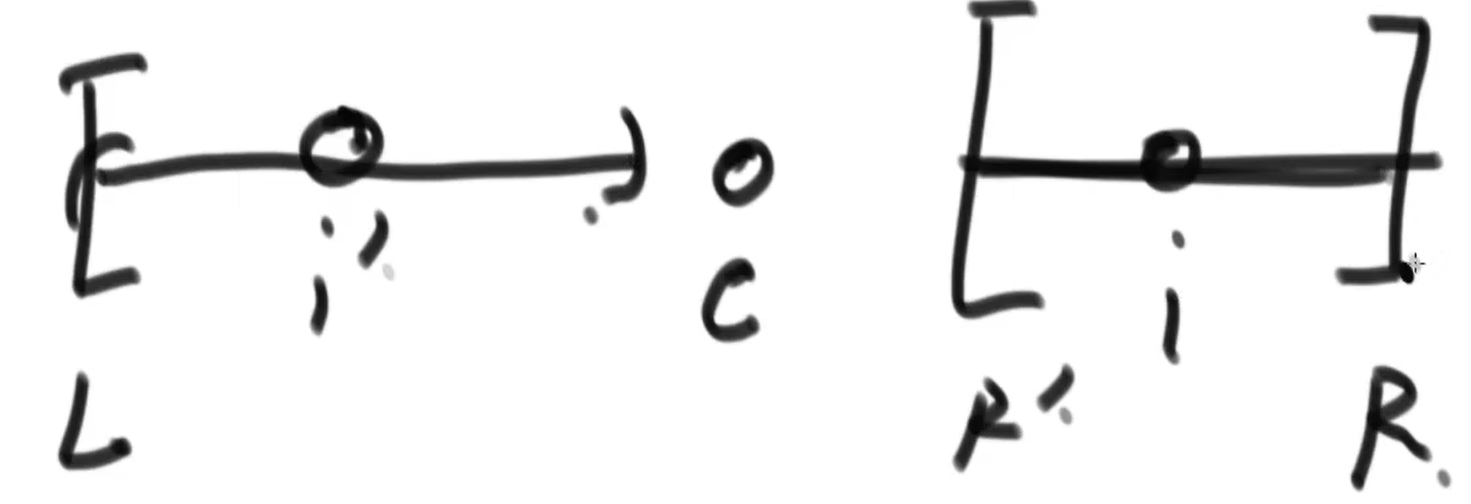 i' C i
L R' R